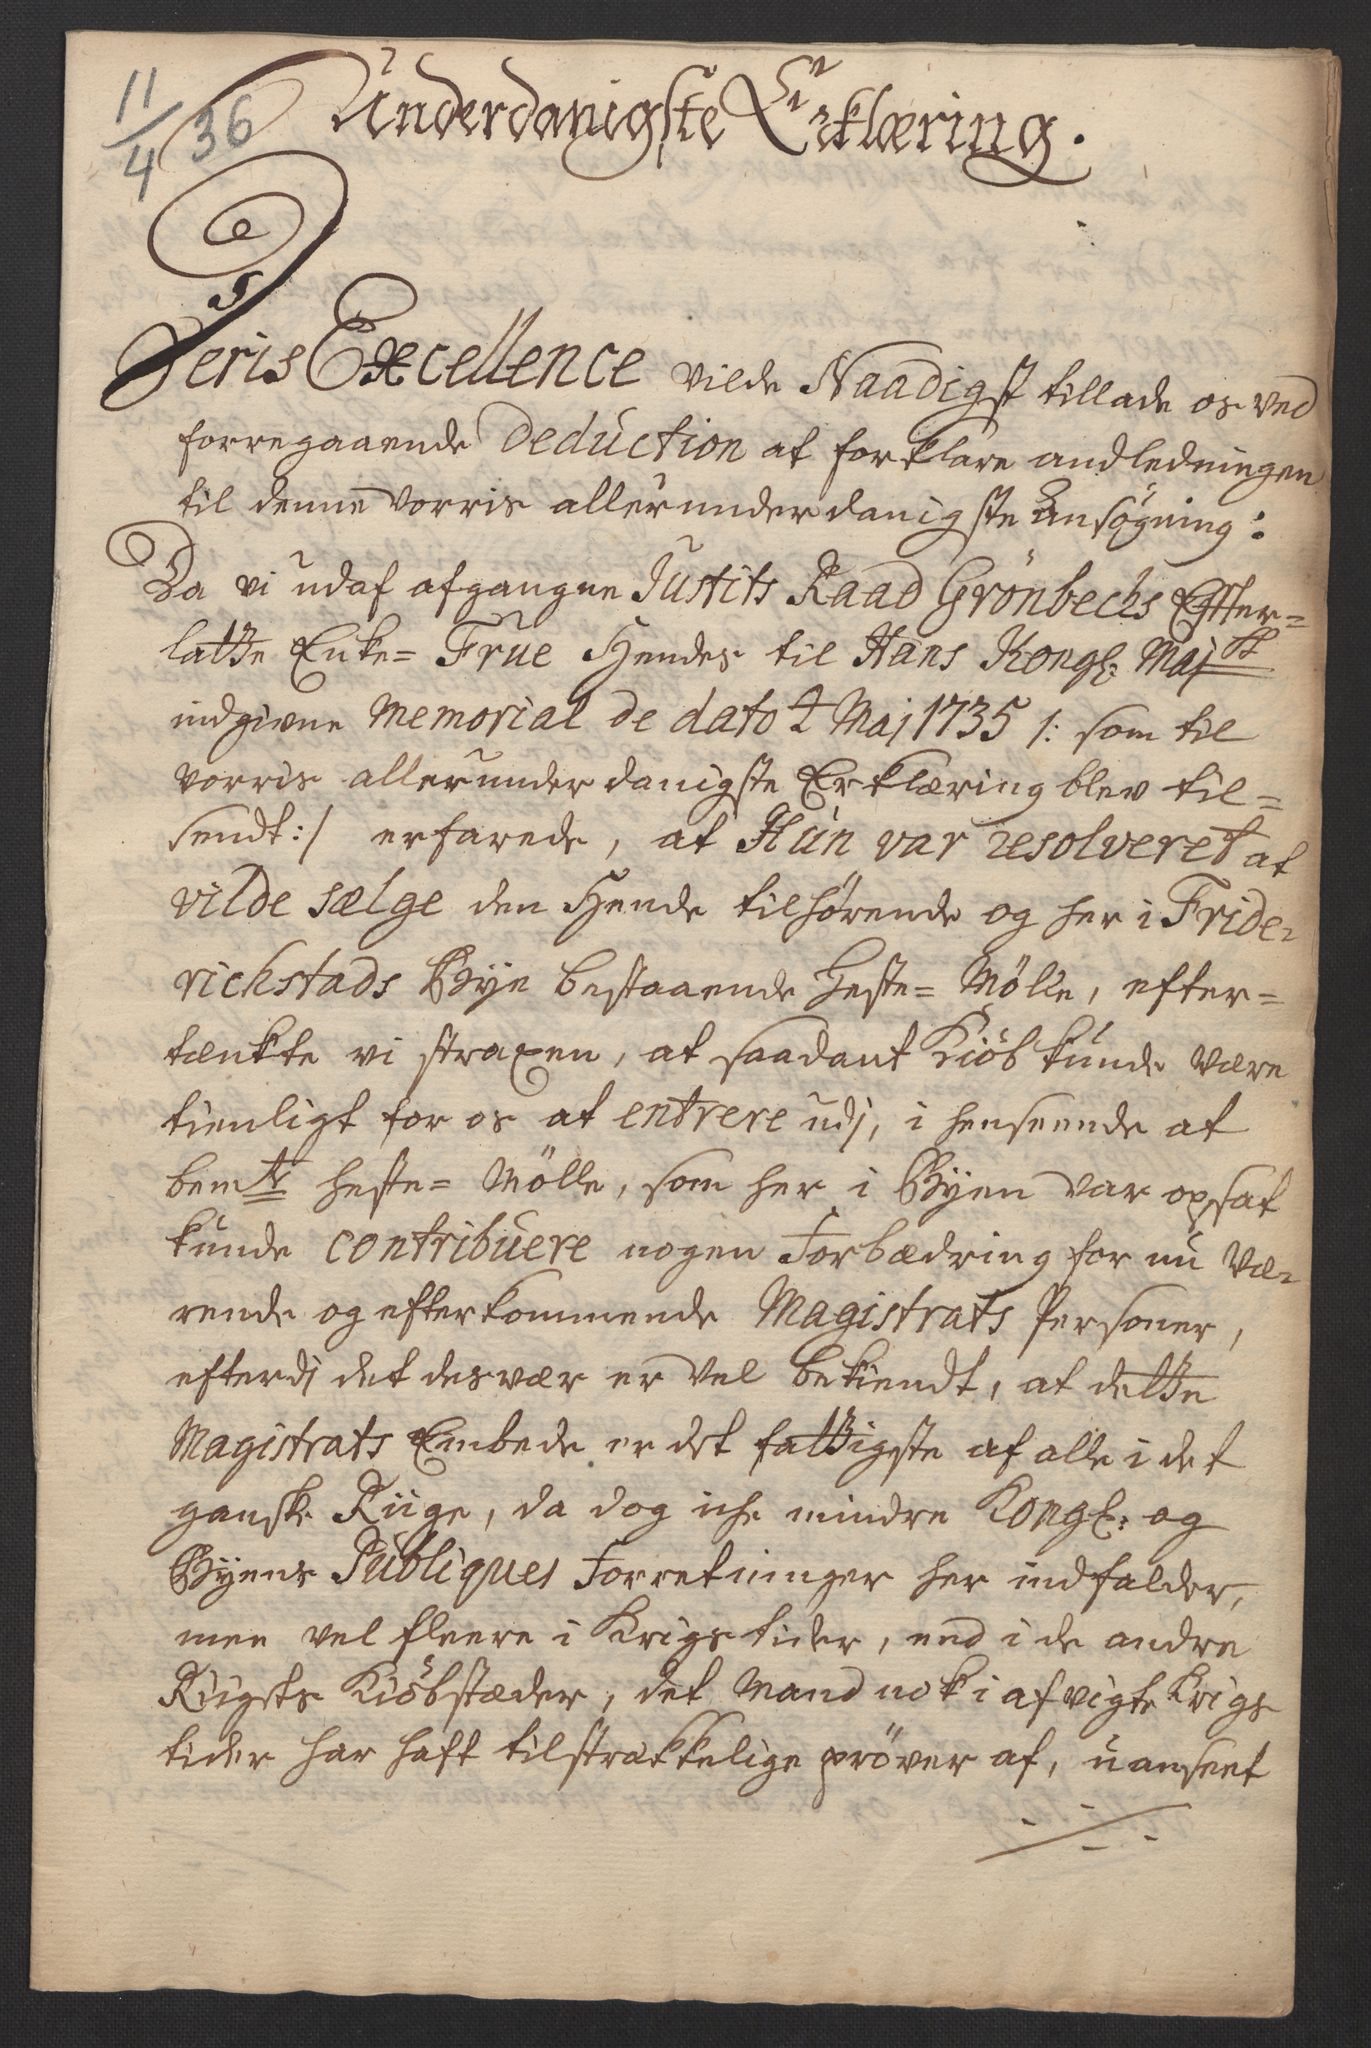 11/4 36
Underdanigste Erklæring.
Deris Excellence vilde Naadigst tillade os ved
forregaaende Deduction at forklare andledningen
til denne vorris allerunderdanigste Ansøgning:
Da vi udaf afgangne Justits Raad Grönbechs Efter=
latte Enke= Frue Hendes til Hans Kongl: Maj<sup>st</sup>
indgivne Memorial de dato 2 Maj 1735 /: som til
vorris allerunderdanigste Erklæring blev til=
sendt :/ erfarede, at Hun var resolveret at
vilde sælge den Hende tilhørende og her i Fride=
richstads Bÿe bestaaende Heste= Mölle, efter=
tænkte vi straxen, at saadant Kiöb kunde være
tienligt for os at entrere udj, i henseende at
bem<sup>te</sup> Heste= Mölle, som her i Bÿen var opsat
kunde contribuere nogen Forbædring for nu Væ=
rende og efterkommende Magistrats Personer,
efterdj det desvær er vel bekiendt, at dette
Magistrats Embede er det fattigste af alle i det
ganske Riige, da dog iche mindre Kongl: og
Bÿens Publiques Forretninger her indfalder,
men vel fleere i Krigstider, end i de andre
Riigets Kiöbstæder, det Mand nok i afvigte Krigs
tider har haft tilstrækkelige pröver af, uanseet